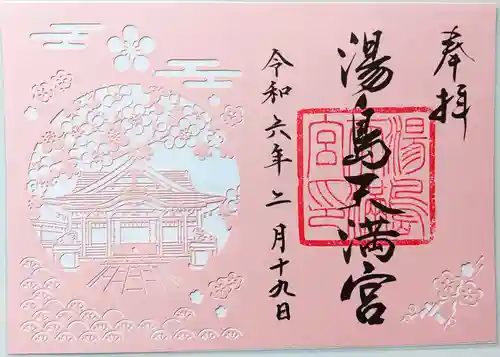 奉拝
湯島天満宮
令和六年二月十九日
湯島天満宮印